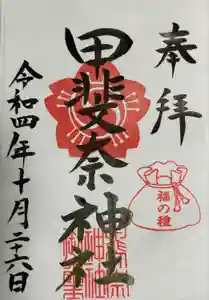 奉拝
福の種
甲斐奈神社
令和四年十月二十六日